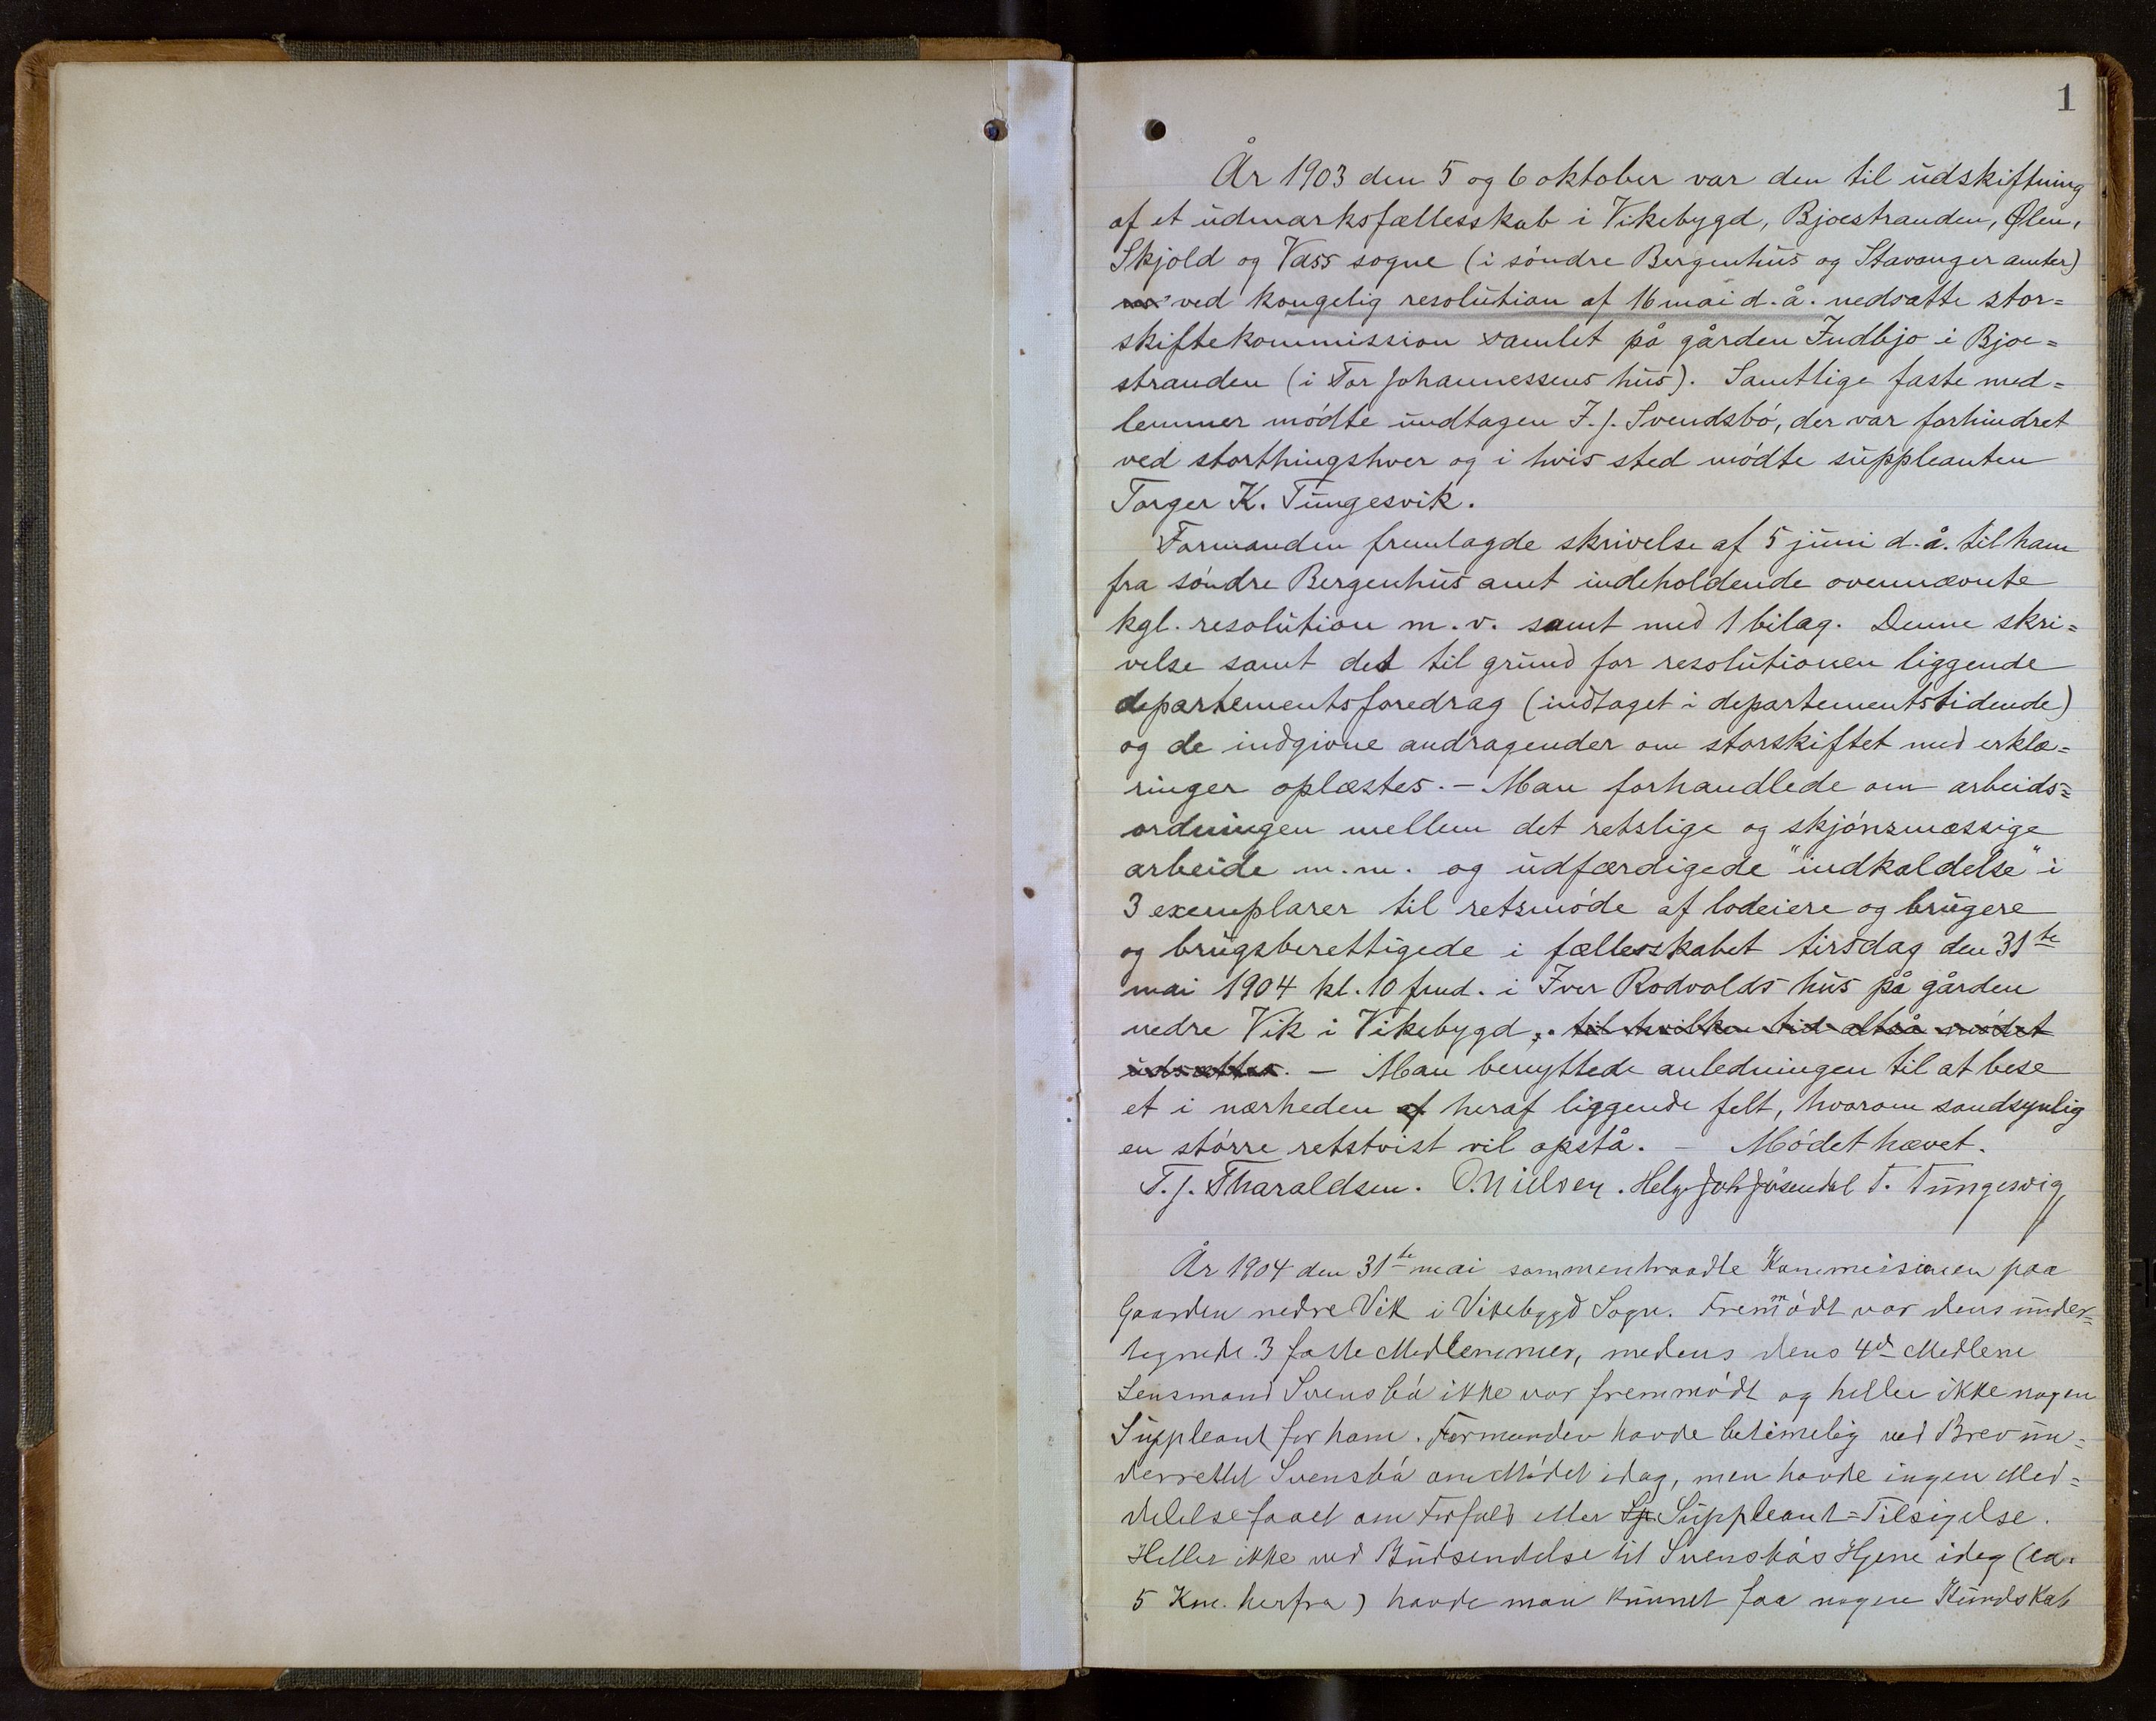 1
År 1903 den 5 og 6 oktober var den til udskiftning
af et udmarksfællesskab i Vikebygd, Bjoestranden, Ølen,
Skjold og Vass sogne (i søndre Bergenhus og Stavanger amter)
ved kongelig resolution af 16 mai d.å. nedsatte stor=
skiftekommission samlet på gården Indbjo i Bjoe=
stranden (i Tor Johannessens hus). Samtlige faste med=
lemmer mødte undtagen I. J. Svendsbø, der var forhindret
ved storthingshver og i hvis sted mødte suppleanten
Torger K. Tungesvik.
Formanden fremlagde skrivelse af 5 juni d.å. til ham
fra søndre Bergenhus amt indeholdende ovennævnte
kgl. resolution m.v. samt med 1 bilag. Denne skri=
velse samt det til grund for resolutionen liggende
departementsforedrag (indtaget i departementstidende)
og de indgivne andragender om storskiftet med erklæ=
ringer oplæstes. – Man forhandlede om arbeids=
ordningen mellem det retslige og skjønsmæssige
arbeide m.m. og udfærdigede "indkaldelse" i
3 exemplarer til retsmøde af lodeiere og brugere
og brugsberettigede i fællesskabet tirsdag den 31te
mai 1904 kl. 10 fmd. i Iver Rodvolds hus på gården
nedre Vik i Vikebygd, til hvilken tid altså mødet
udsættes. – Man benyttede anledningen til at bese
et i nærheden af heraf liggende felt, hvorom sandsynlig
en større retstvist vil opstå. – Mødet hævet.
T. J. Tharaldsen. O. Nielsen. Helge Joh Jøsendal T. Tungesvig
År 1904 den 31te mai sammentraadte Kommissionen paa
Gaarden nedre Vik i Vikebygd Sogn. Fremmødt var dens under=
tegnede 3 faste Medlemmer, medens dens 4de Medlem
Lensmand Svensbø ikke var fremmødt og heller ikke nogen
Suppleant for ham. Formanden havde betimelig ved Brev un=
derrettet Svensbø om Mødet idag, men havde ingen Med=
delelse faaet om Forfald eller Sp. Suppleant=Tilsigelse.
Heller ikke ved Budsendelse til Svensbøs Hjem idag (ca.
5 Km. herfra) havde man kunnet faa nogen Kundskab